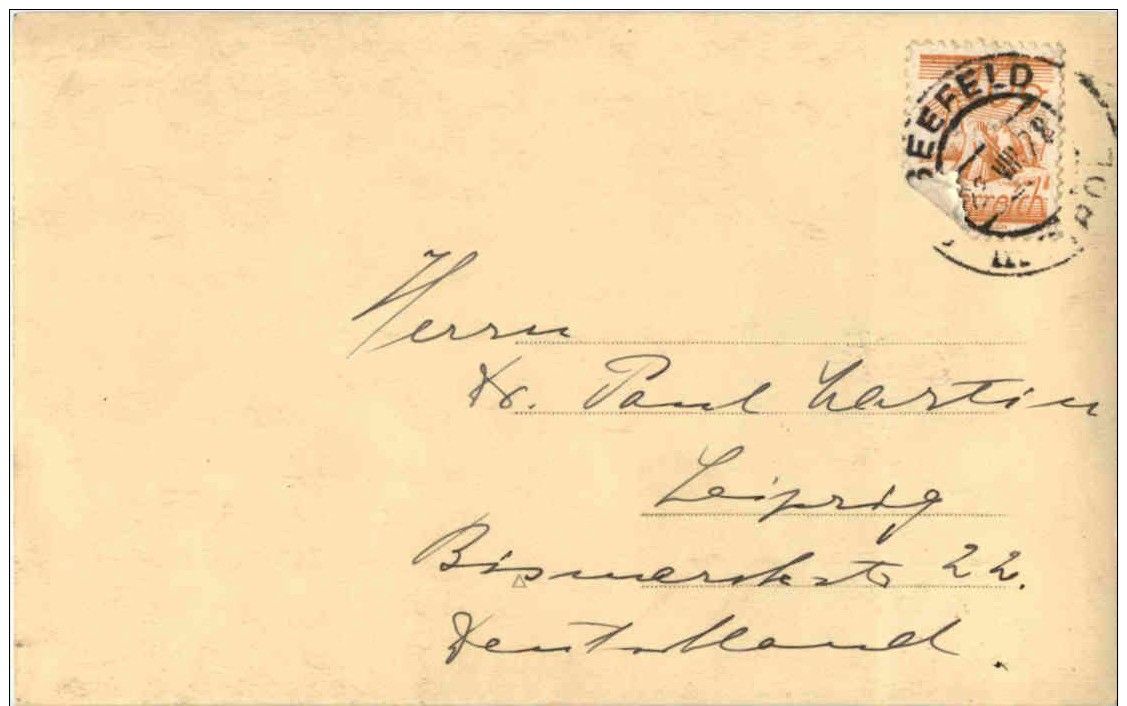 SEEFELD
Herrn
Dr. Paul Martin
Leipzig
Bismarckstr 22.
Deutschland.